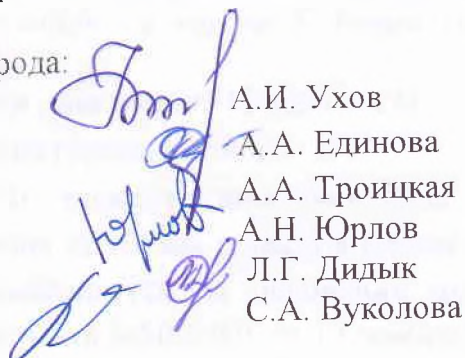 рода:
А.И. Ухов
А.А. Единова
А.А. Троицкая
Юрлов А.Н. Юрлов
Л.Г. Дидык
С.А. Вуколова